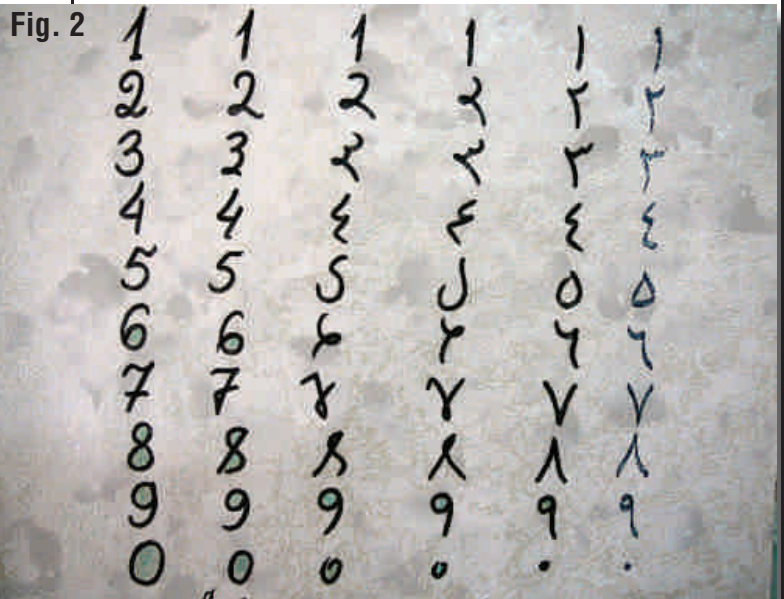 Fig. 2
1 1 1 1 ١ ١
2 2 2 ٢ ٢ ٢
3 3 ٣ ٣
4 4 ٤ ٤ ٤ ٤
5 5 5 ٥ ٥
6 6 ٦ ٦
7 7 ٧ ٧
8 8 8 ٨ ٨
9 9 9 9 ٩ ٩
0 0 0 0 ٠ ٠